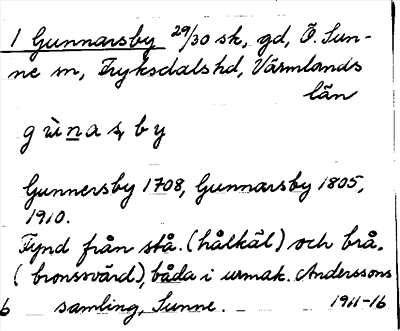 1 Gunnarsby 29/30 sk, gd, Ö. Sun-
ne sn, Fryksdals hd, Värmlands
län
g ù n a ʂ b y
Gunnersby 1708, Gunnarsby 1805,
1910.
Fynd från stå. (hålkäl) och brå.
(bronssvärd), båda i urmak. Anderssons
6 samling, Sunne. 1911-16